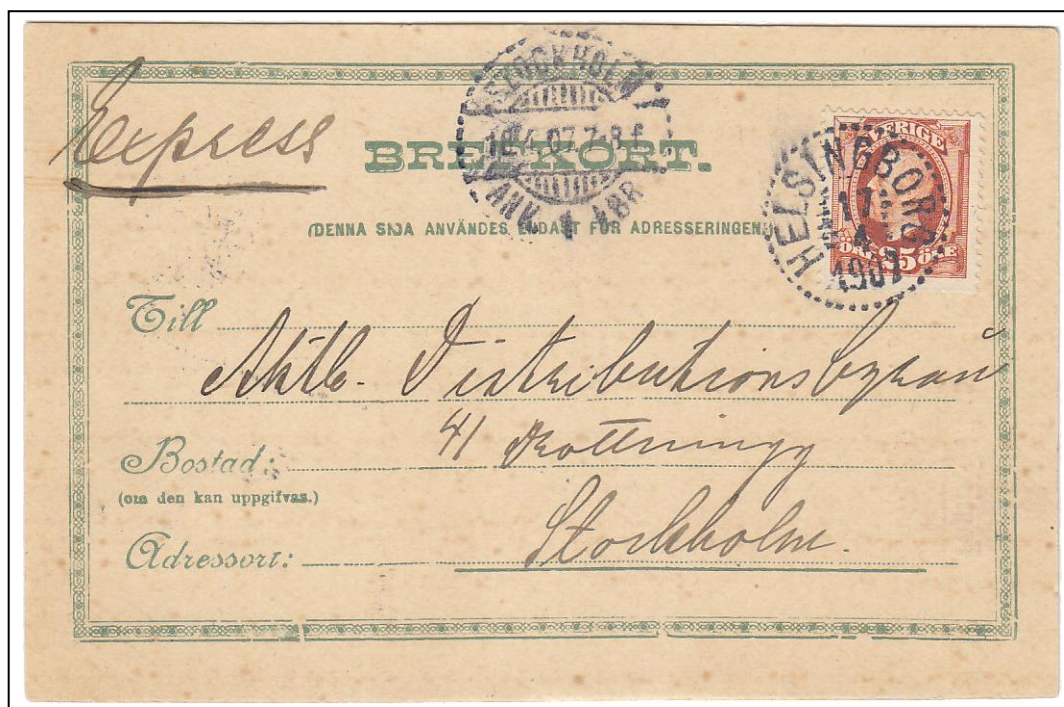 Express
BREFKORT.
STOCKHOLM 1
18.4.07.7-8 f.
ANK AFR
SVERIGE
ÖRE 25 ÖRE
HELSINGBORG
17
4
1907
(DENNA SIDA ANVÄNDES ENDAST FÖR ADRESSERINGEN.)
Till Aktb. Distributionsbyrån
Bostad: 41 Drottningg
(om den kan uppgifvas.)
Adressort: Stockholm.